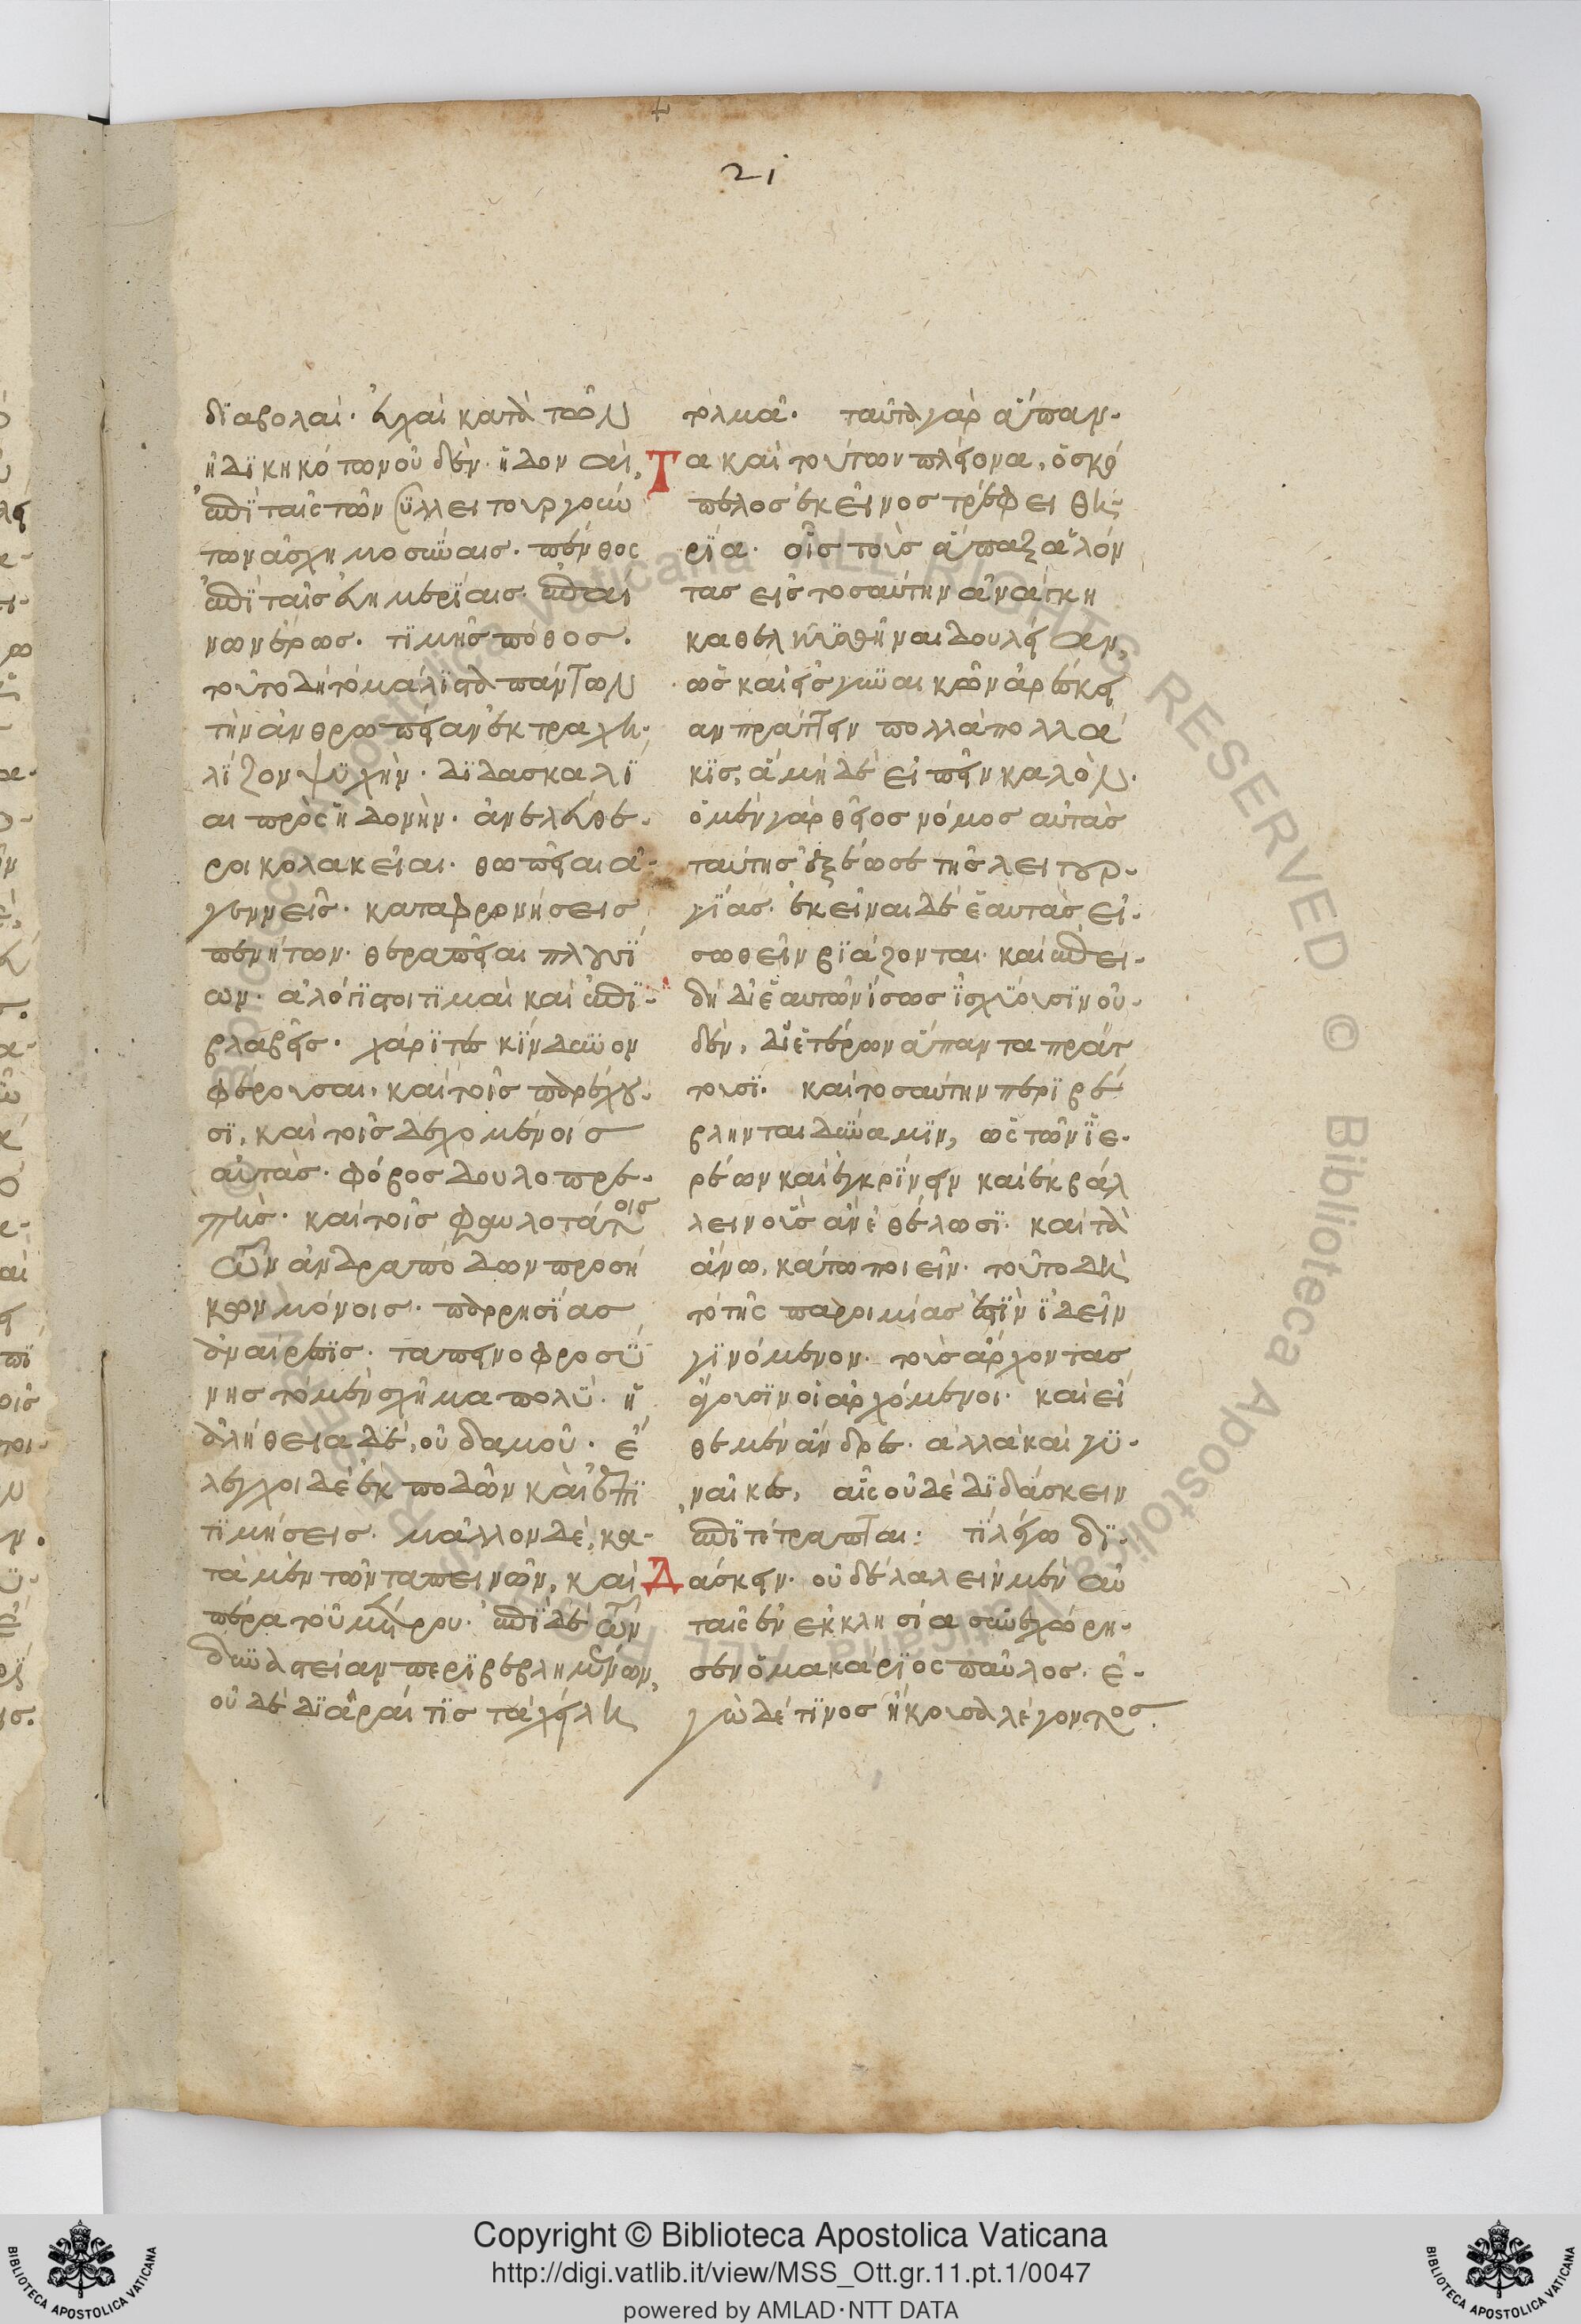 21
διαβολαὶ· εὐχαὶ κατὰ τῶν
ἠδικηκότων οὐδέν· ἡδοναὶ,
ἐπὶ ταῖς τῶν συλλειτουργούν
των ἀσχημοσύναις· πένθος
ἐπὶ ταῖς εὐημερίαις· ἐπαί
νων ἔρως· τιμῆς πόθος·
τοῦτο δὴ τὸ μάλιστα πάντων
τὴν ἀνθρωπείαν ἐκτραχη-
λίζον ψυχήν· διδασκαλί
αι πρὸς ἡδονήν· ἀνελεύθε-
ροι κολακεῖαι· θωπεῖαι ἀ-
γεννεῖς· καταφρονήσεις
πενήτων· θεραπεῖαι πλουσί
ων· ἀλόγιστοι τιμαὶ καὶ ἐπι-
βλαβεῖς· χάριτες κίνδυνον
φέρουσαι, καὶ τοῖς παρέχου-
σι, καὶ τοῖς δεχομένοις
αὐτάς· φόβος δουλοπρε-
πής· καὶ τοῖς φαυλοτάτοις
τῶν ἀνδραπόδων προσή
κων μόνοις· παρρησίας
ἀναίρεσις· ταπεινοφροσύ
νης τὸ μὲν σχῆμα πολύ· ἡ
ἀλήθεια δὲ, οὐδαμοῦ· ἔ
λεγχοι δὲ ἐκποδῶν καὶ ἐπι
τιμήσεις· μᾶλλον δὲ, κα-
τὰ μὲν τῶν ταπεινῶν, καὶ
πέρα τοῦ μέτρου· ἐπὶ δὲ τῶν
δυναστείαν περιβεβλημένων,
οὐδὲ διᾶραί τις τὰ χείλη
τολμᾷ· ταῦτα γὰρ ἅπαν-
Τα καὶ τούτων πλείονα, ὁ σκό
πελος ἐκεῖνος τρέφει θη-
ρία· οἷς τοὺς ἅπαξ ἁλόν
τας εἰς τοσαύτην ἀνάγκη
καθελκυσθῆναι δουλείαν,
ὡς καὶ εἰς γυναικῶν ἀρέσκει
αν πράττειν πολλὰ πολλά
κις, ἃ μηδὲ εἰπεῖν καλόν.
ὁ μὲν γὰρ θεῖος νόμος αὐτὰς
ταύτης ἐξέωσε τῆς λειτουρ-
γίας· ἐκεῖναι δὲ ἑαυτὰς εἰ-
σωθεῖν βιάζονται· καὶ ἐπει-
δὴ δι' ἑαυτῶν ἰσως ἰσχύουσιν οὐ-
δέν, δι' ἑτέρων ἅπαντα πράτ
τουσι· καὶ τοσαύτην περιβέ
βληνται δύναμιν, ὡς τῶν ἱε-
ρέων καὶ ἐγκρίνειν καὶ ἐκβάλ
λειν οὓς ἂν ἐθέλωσι· καὶ τὰ
ἄνω, κάτω ποιεῖν· τοῦτο δὴ
τὸ τῆς παροιμίας ἐστὶν ἰδεῖν
γινόμενον· τοὺς ἄρχοντας
ἄγουσιν οἱ ἀρχόμενοι· καὶ εἴ
θε μὲν ἄνδρες· ἀλλὰ καὶ γυ-
ναῖκες, αἷς οὐδὲ διδάσκειν
ἐπιτέτραπται: τί λέγω δι-
Δάσκειν· οὐδὲ λαλεῖν μὲν αὐ
ταῖς ἐν ἐκκλησία συνεχώρη-
σεν ὁ μακάριος παῦλος· ἐ-
γὼ δέ τινος ἤκουσα λέγοντος.
Copyright © Biblioteca Apostolica Vaticana
http://digi.vatlib.it/view/MSS_Ott.gr.11.pt.1/0047
powered by AMLAD·NTT DATA